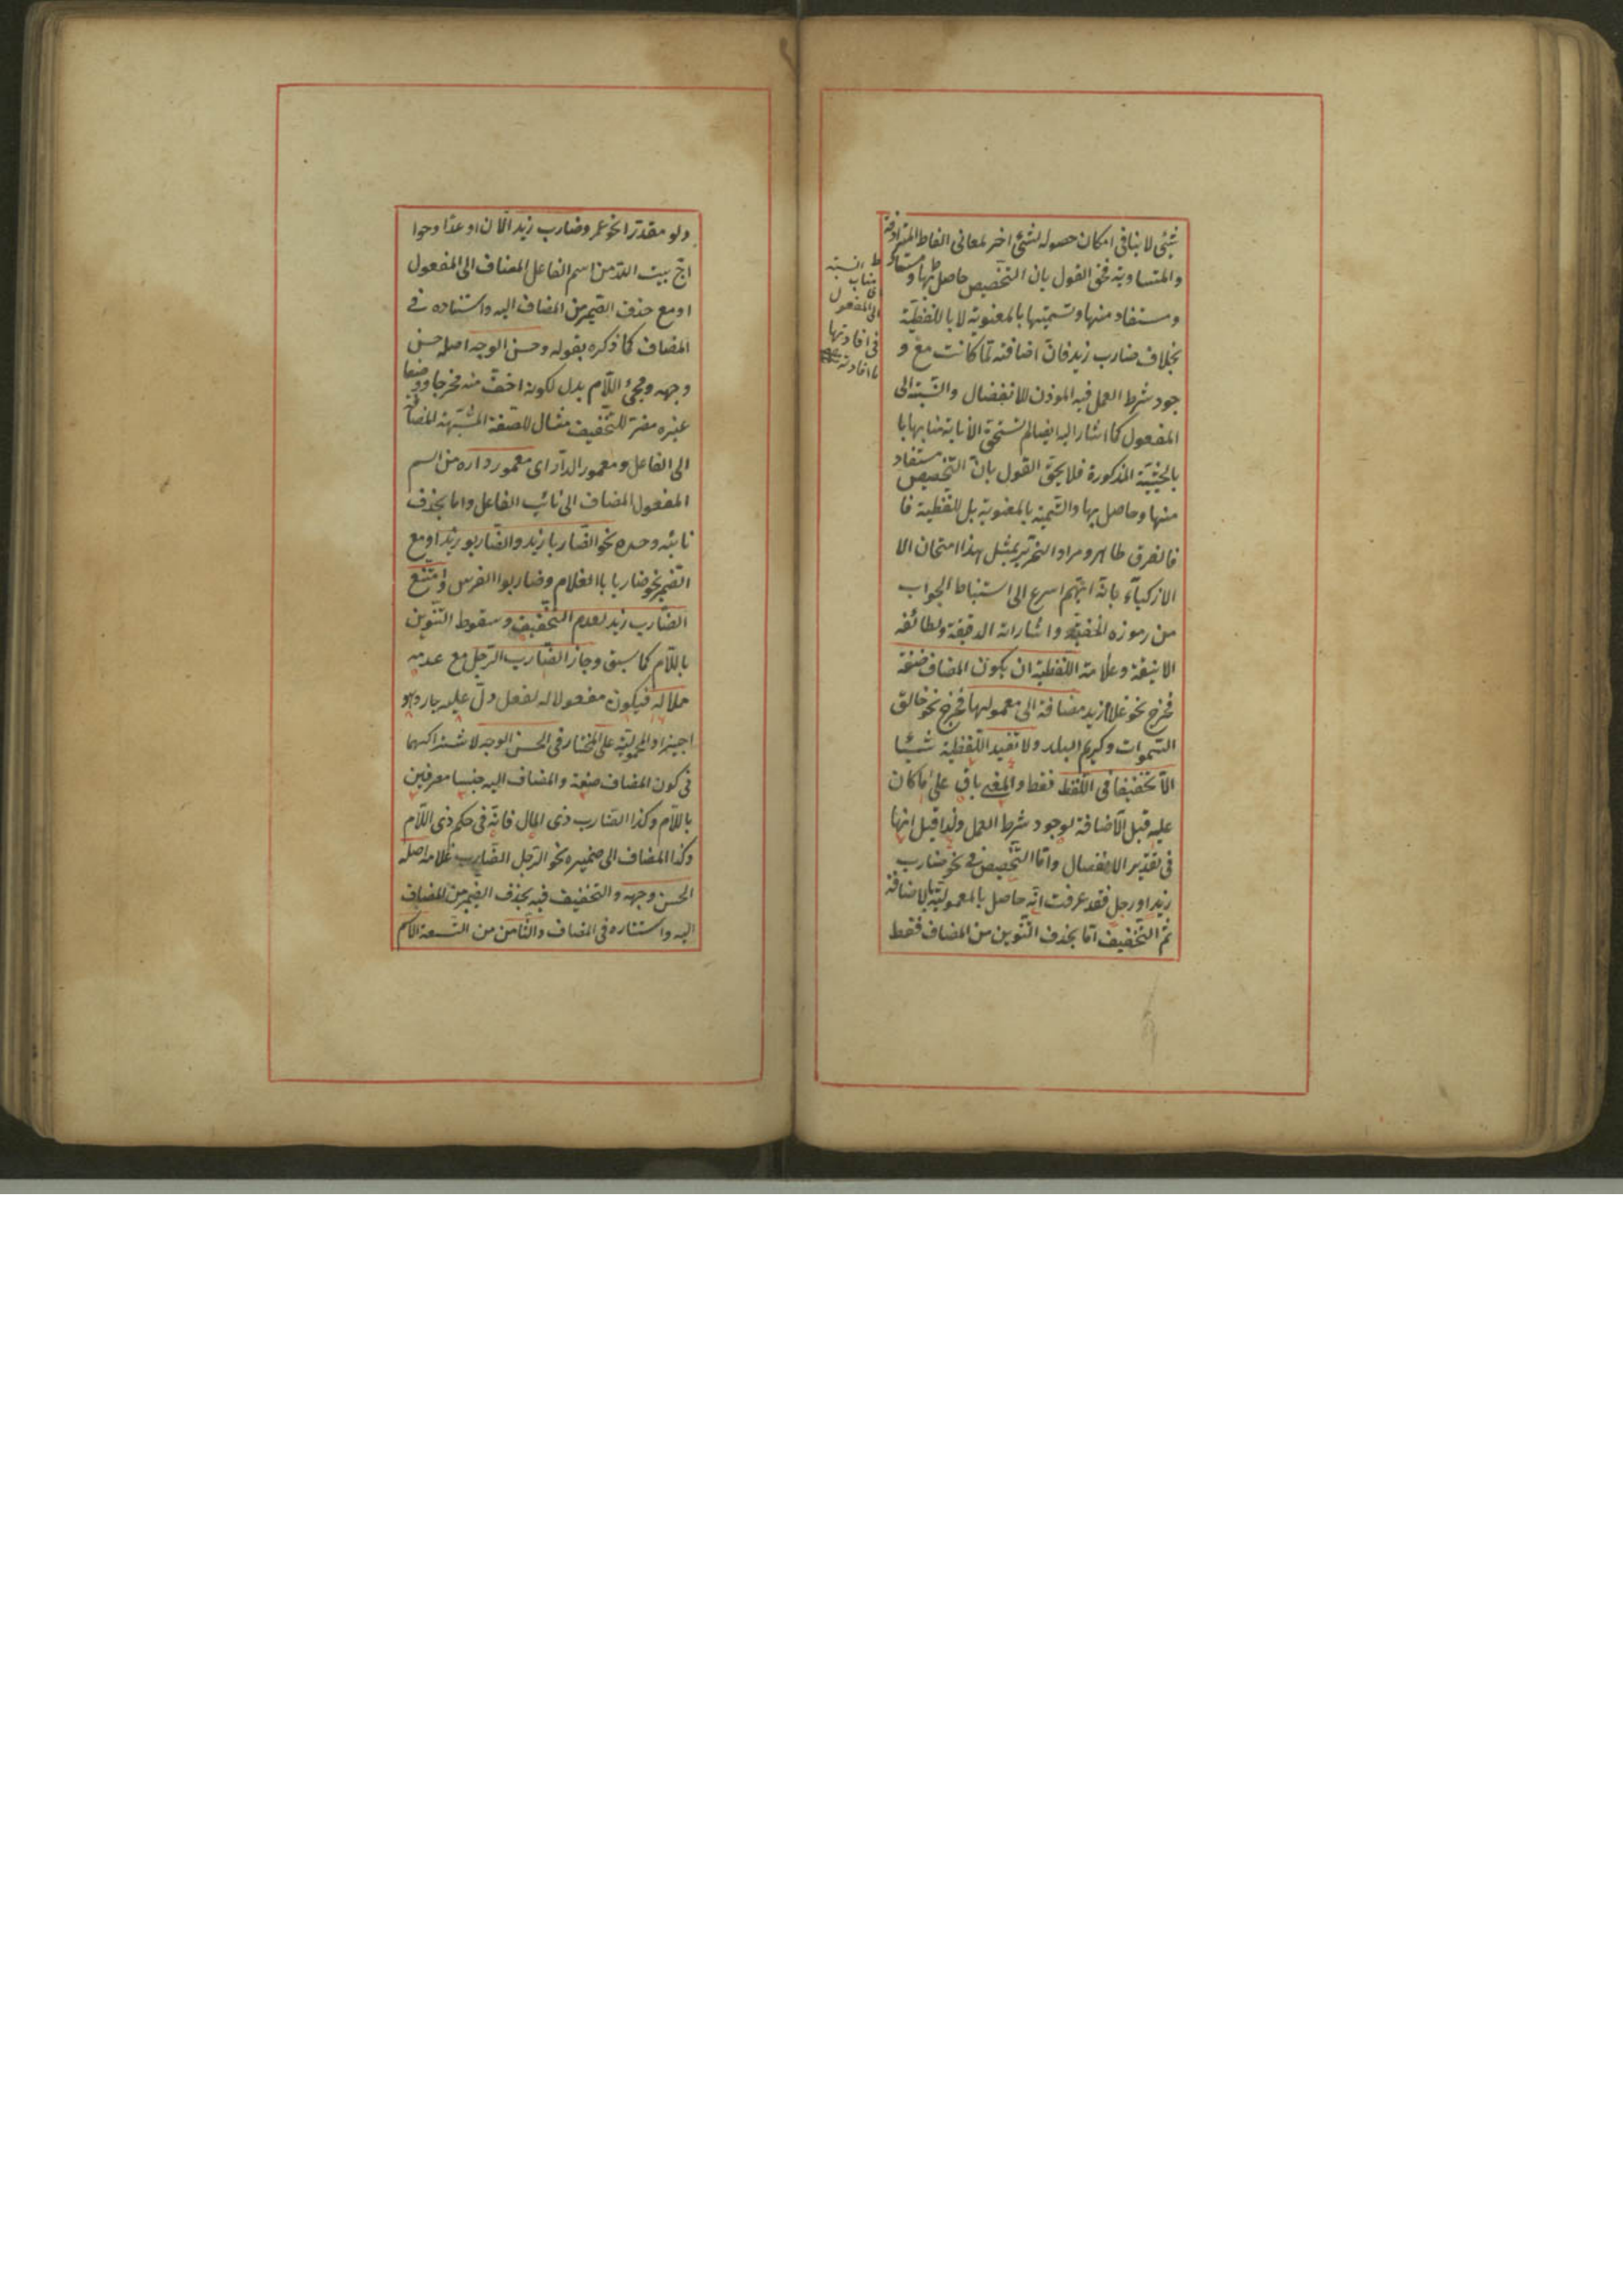 شئ لا ينافى امكان حصوله لشئ اخر لمعانى الفاظ المترادفة
والمتساوية فحق القول بان التخصيص حاصل بها و مستفاد
ومستفاد منها وتسميتها بالمعنوية لا باللفظية
بخلاف ضارب زيد فان اضافته لما كانت مع و
جود شرط العمل فيه الموذن للانفصال والنسبة الى
المفعول كما اشار اليه ايضا لم تستحق الانابة منابها با
بالحيثية المذكورة فلا يحق القول بان التخصيص مستفاد
منها وحاصل بها والتسمية بالمعنوية بل للفظية فا
فالفرق ظاهر ومراد النحرير بمثل هذا امتحان الا
الازكياء بانه ايهم اسرع الى استنباط الجواب
من رموزه الخفية واشاراته الدقيقة ولطائفه
الانيقة وعلامة اللفظية ان يكون المضاف صفة
فخرج نحو غلام زيد مضافة الى معمولها فخرج نحو خالق
السموات وكريم البلد ولا تفيد اللفظية شيئا
الا تخفيفا فى اللفظ فقط والمعنى باق على ما كان
عليه قبل الاضافة لوجود شرط العمل ولذا قيل انها
فى تقدير الانفصال واما التخصيص فى نحو ضارب
زيد او رجل فقد عرفت انه حاصل بالمعمولية لا بالاضافة
ثم التخفيف اما بحذف التنوين من المضاف فقط
النسبة
مناب
الى المفعول
فى افادتها
ما افادته
ولو مقدرا نحو عمرو ضارب زيد الان او غدا وحوا
اج بيت الله من اسم الفاعل المضاف الى المفعول
او مع حذف الضمير من المضاف اليه واستناده فى
المضاف كما ذكره بقوله وحسن الوجه اصله حسن
وجهه ومجئ اللام بدل لكونه اخف منه مخرجا ووضعا
غيره مضر للتخفيف مثال للصفة المشبهة المضافة
الى الفاعل ومعمور الدار اى معمور داره من اسم
المفعول المضاف الى نائب الفاعل واما بحذف
نائبه وحده نحو الضاربا زيد والضاربو زيد او مع
الضمير نحو ضاربا با الغلام وضاربوا الفرس وامتنع
الضارب زيد لعدم التخفيف وسقوط التنوين
باللام كما سبق وجاز الضارب الرجل مع عدمه
حملا له فيكون مفعولا له لفعل دل عليه جاز وهو
اجيز او المحمولية على المختار فى الحسن الوجه لاشتراكهما
فى كون المضاف صفة والمضاف اليه جنسا معرفين
باللام وكذا الضارب ذى المال فانه فى حكم ذى اللام
وكذا المضاف الى ضميره نحو الرجل الضارب غلامه اصله
الحسن وجهه والتخفيف فيه بحذف الضمير من المضاف
اليه واستتاره فى المضاف والثامن من التسعة الاسم